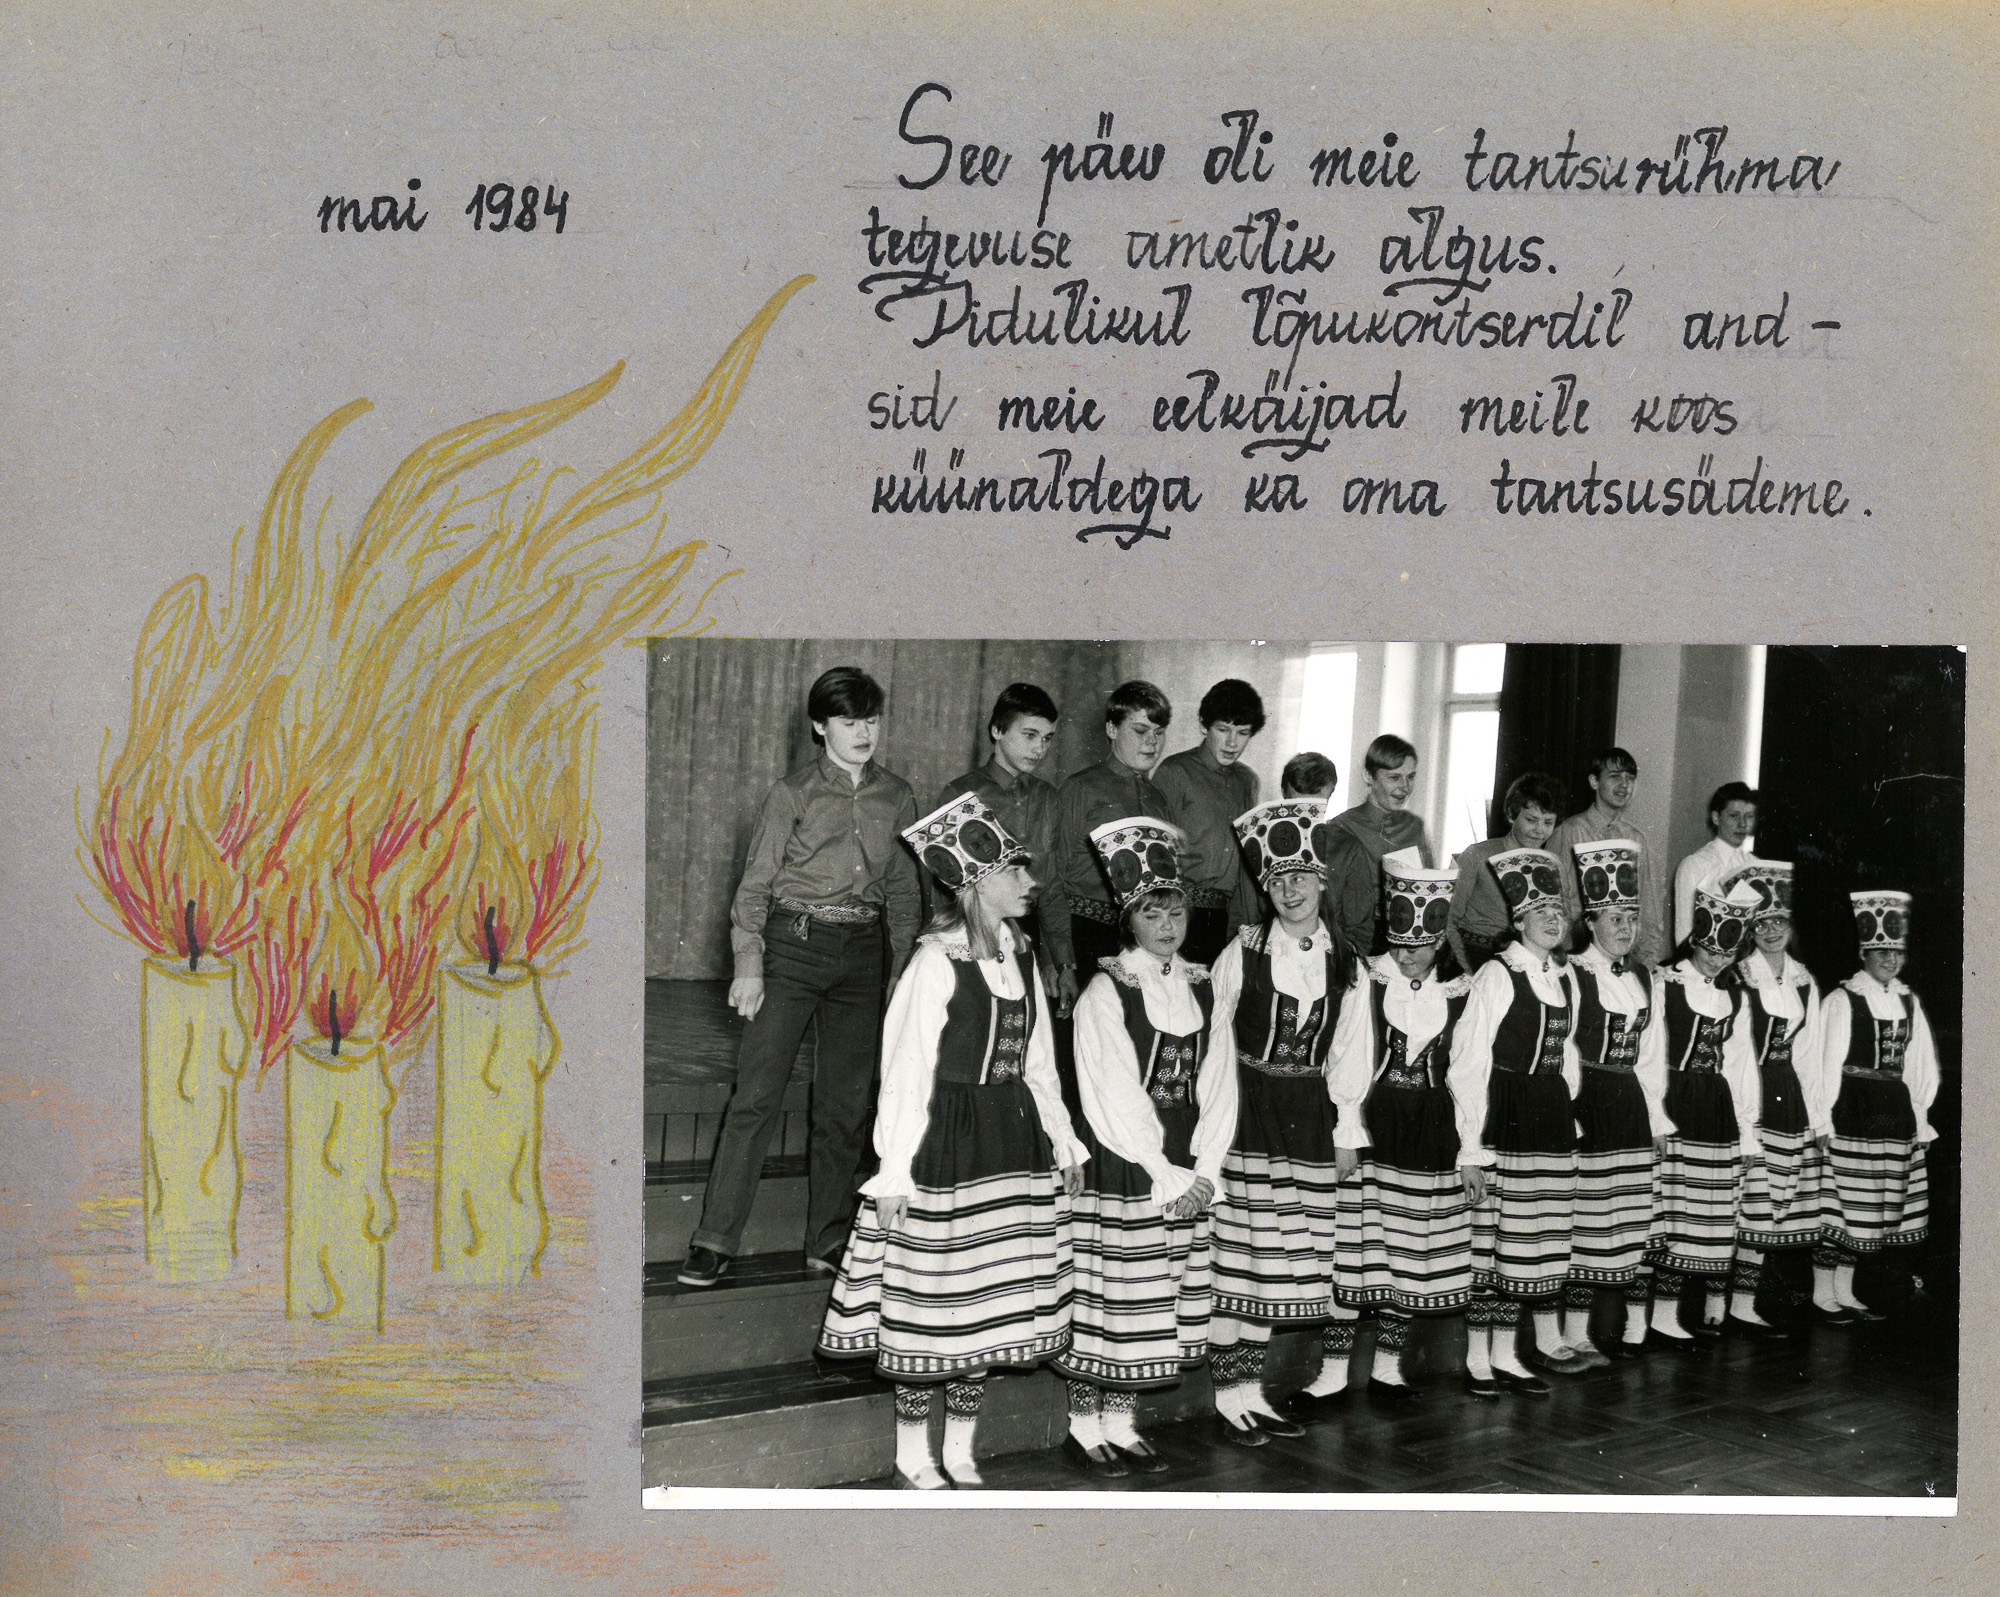 mai 1984
See päev oli meie tantsurühma
tegevuse ametlik algus.
Pidulikul lõpukontserdil and-
sid meie eelkäijad meile koos
küünaldega ka oma tantsusädeme.